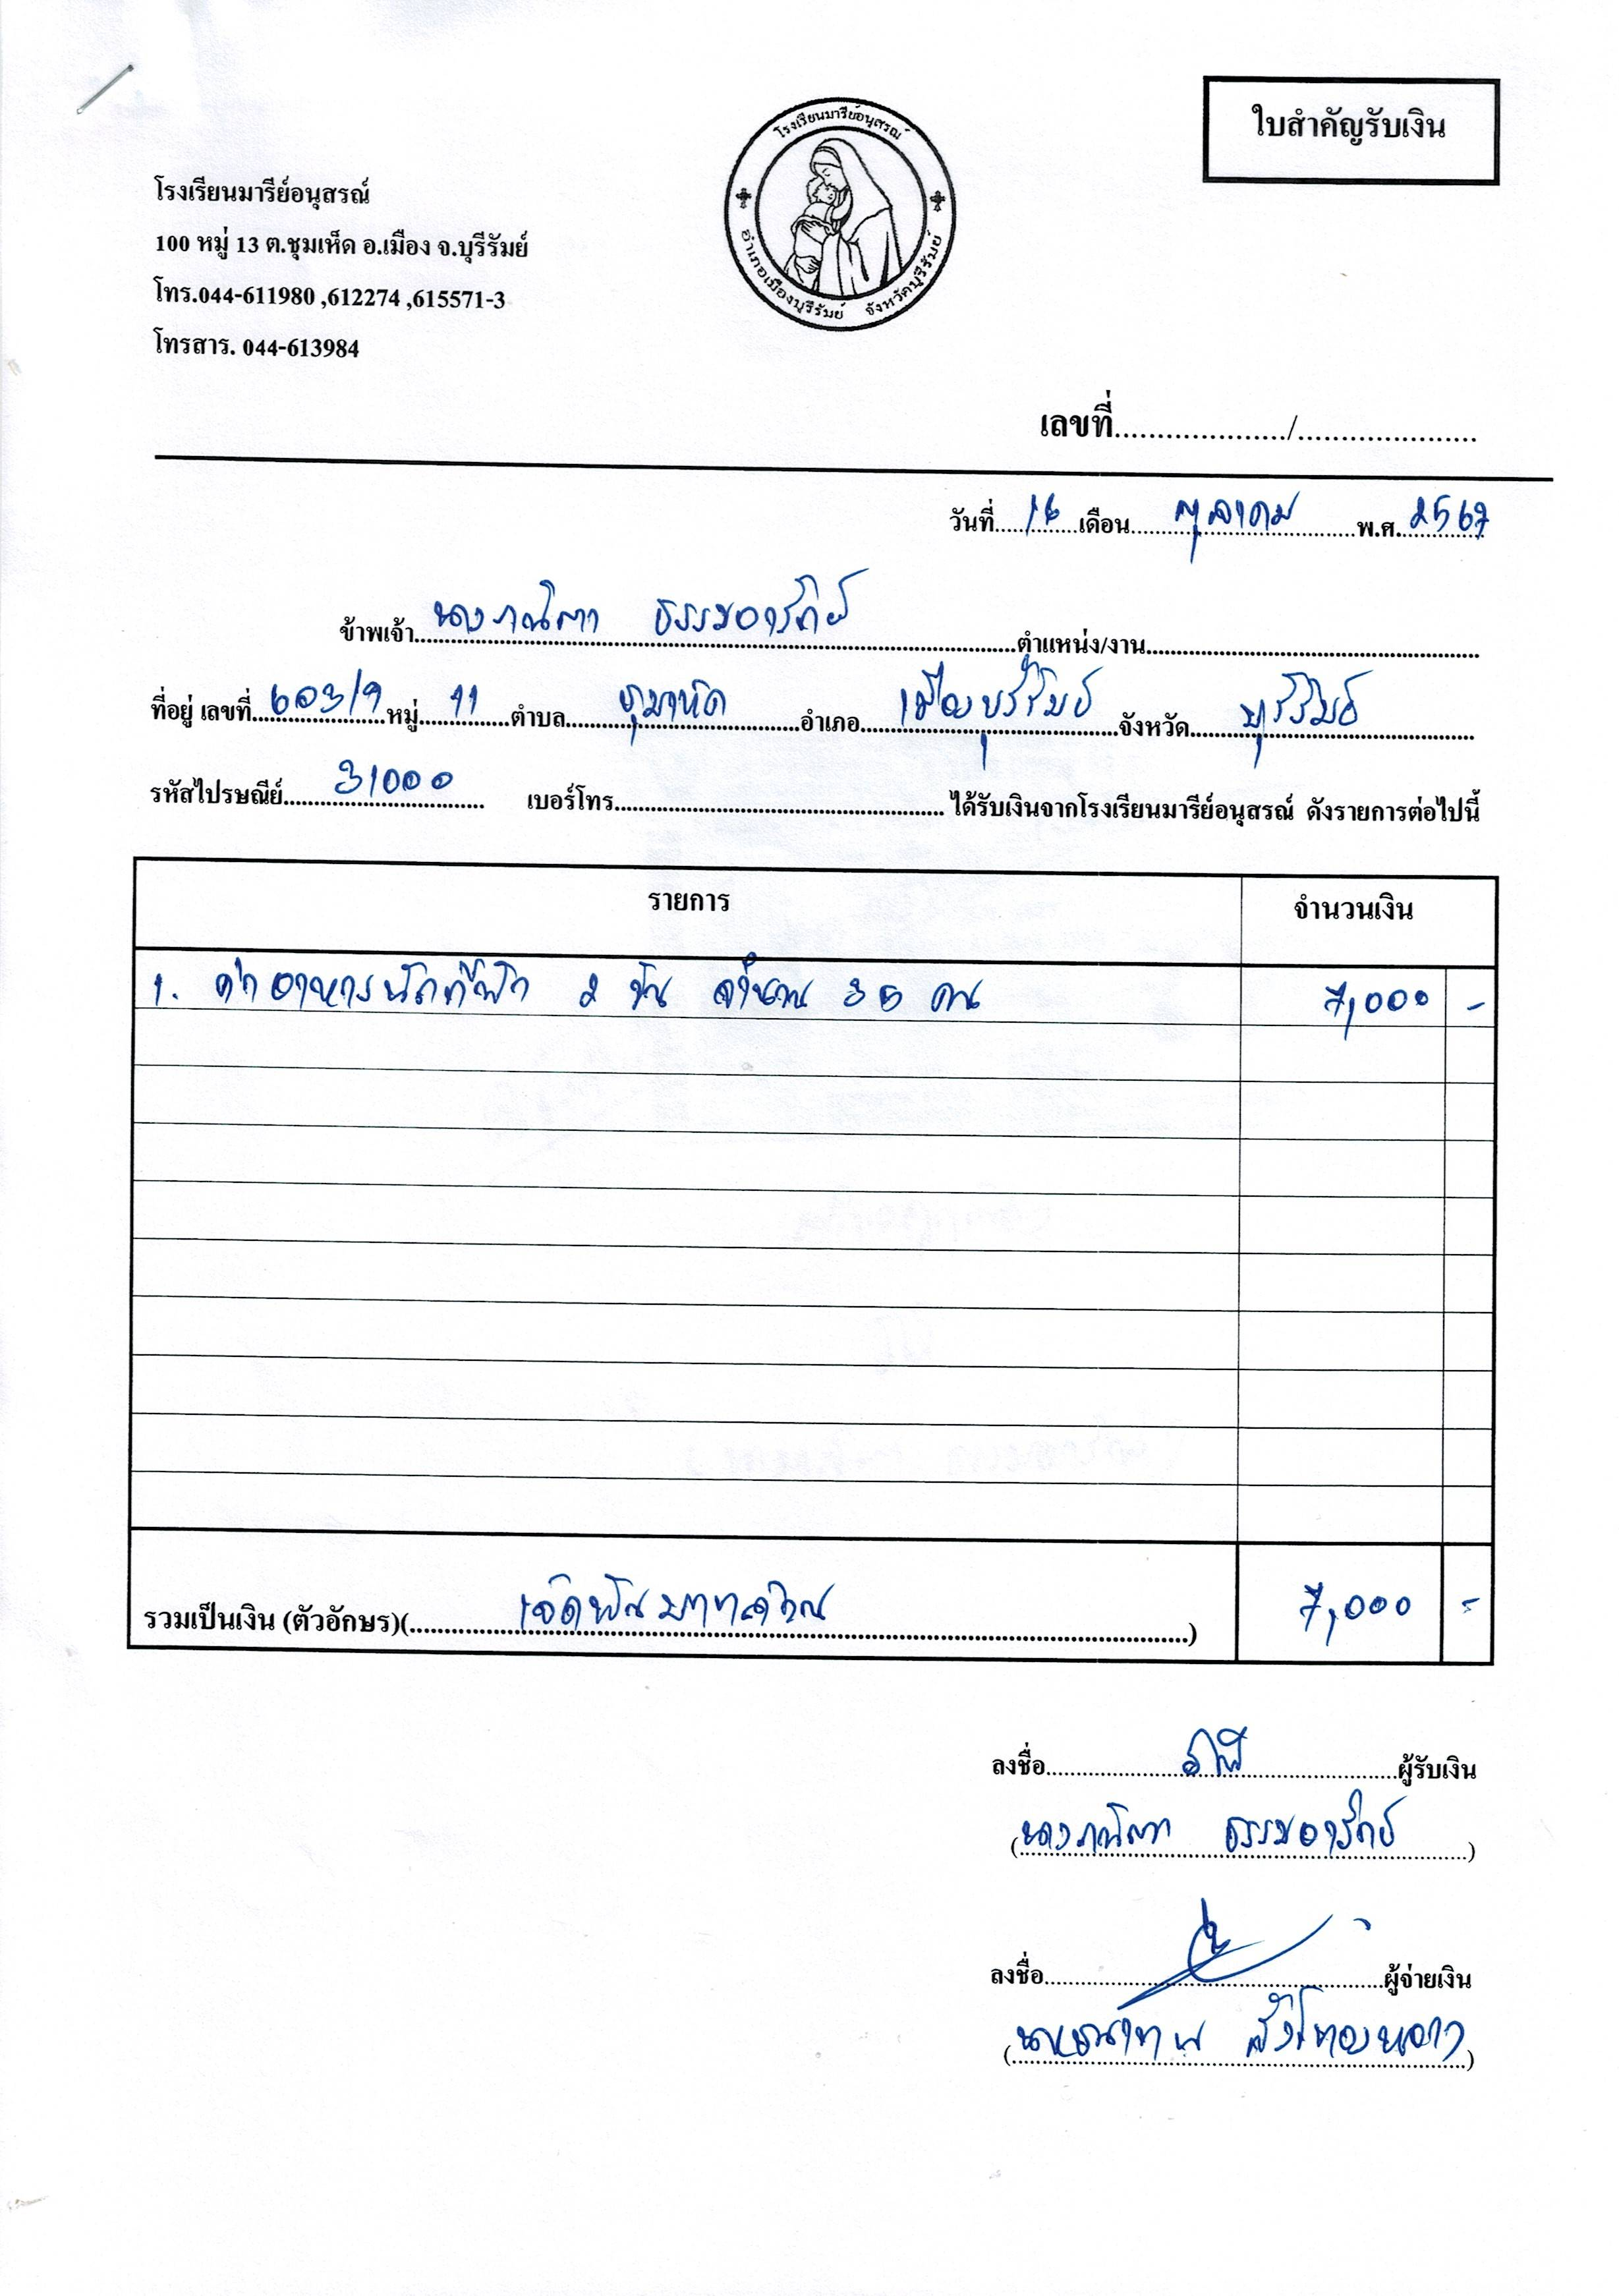 ใบสำคัญรับเงิน
โรงเรียนมารีย์อนุสรณ์
อำเภอเมืองบุรีรัมย์ จังหวัดบุรีรัมย์
โรงเรียนมารีย์อนุสรณ์
100 หมู่ 13 ต.ชุมเห็ด อ.เมือง จ.บุรีรัมย์
โทร.044-611980 ,612274 ,615571-3
โทรสาร. 044-613984
เลขที่..................../.....................
วันที่ 16 เดือน ตุลาคม พ.ศ. 2567
ข้าพเจ้า นางภณิตา ธรรมอารักย์ ตำแหน่ง/งาน
ที่อยู่ เลขที่ 603/9 หมู่ 11 ตำบล ชุมเห็ด อำเภอ เมืองบุรีรัมย์ จังหวัด บุรีรัมย์
รหัสไปรษณีย์ 31000 เบอร์โทร ได้รับเงินจากโรงเรียนมารีย์อนุสรณ์ ดังรายการต่อไปนี้
รายการ จำนวนเงิน
1. ค่าอาหารนักกีฬา 2 วัน จำนวน 35 คน 7,000 -
รวมเป็นเงิน (ตัวอักษร)( เจ็ดพันบาทถ้วน ) 7,000 -
ลงชื่อ ผู้รับเงิน
( นางภณิตา ธรรมอารักย์ )
ลงชื่อ ผู้จ่ายเงิน